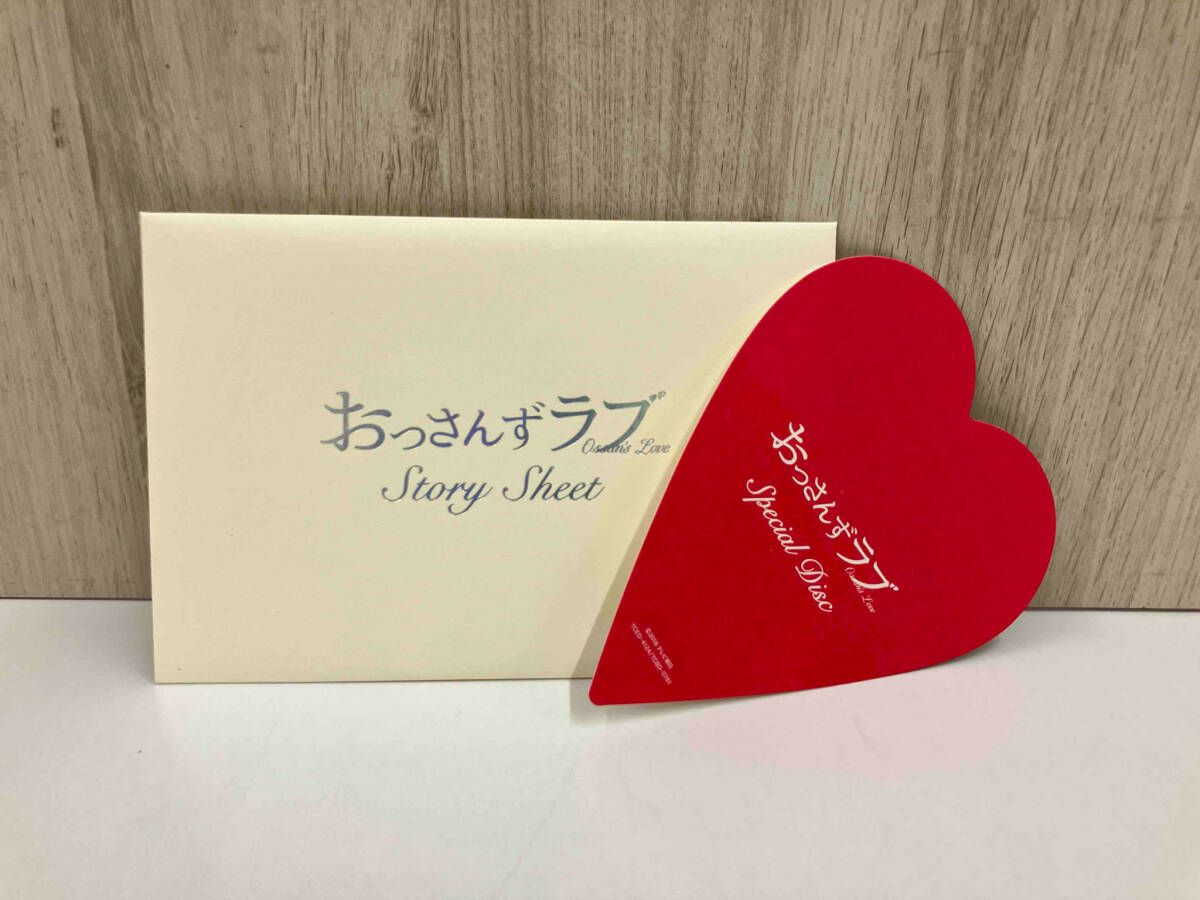 おっさんずラブ
Ossan's Love
Story Sheet
おっさんずラブ
Ossan's Love
Special Disc
©2018 テレビ朝日